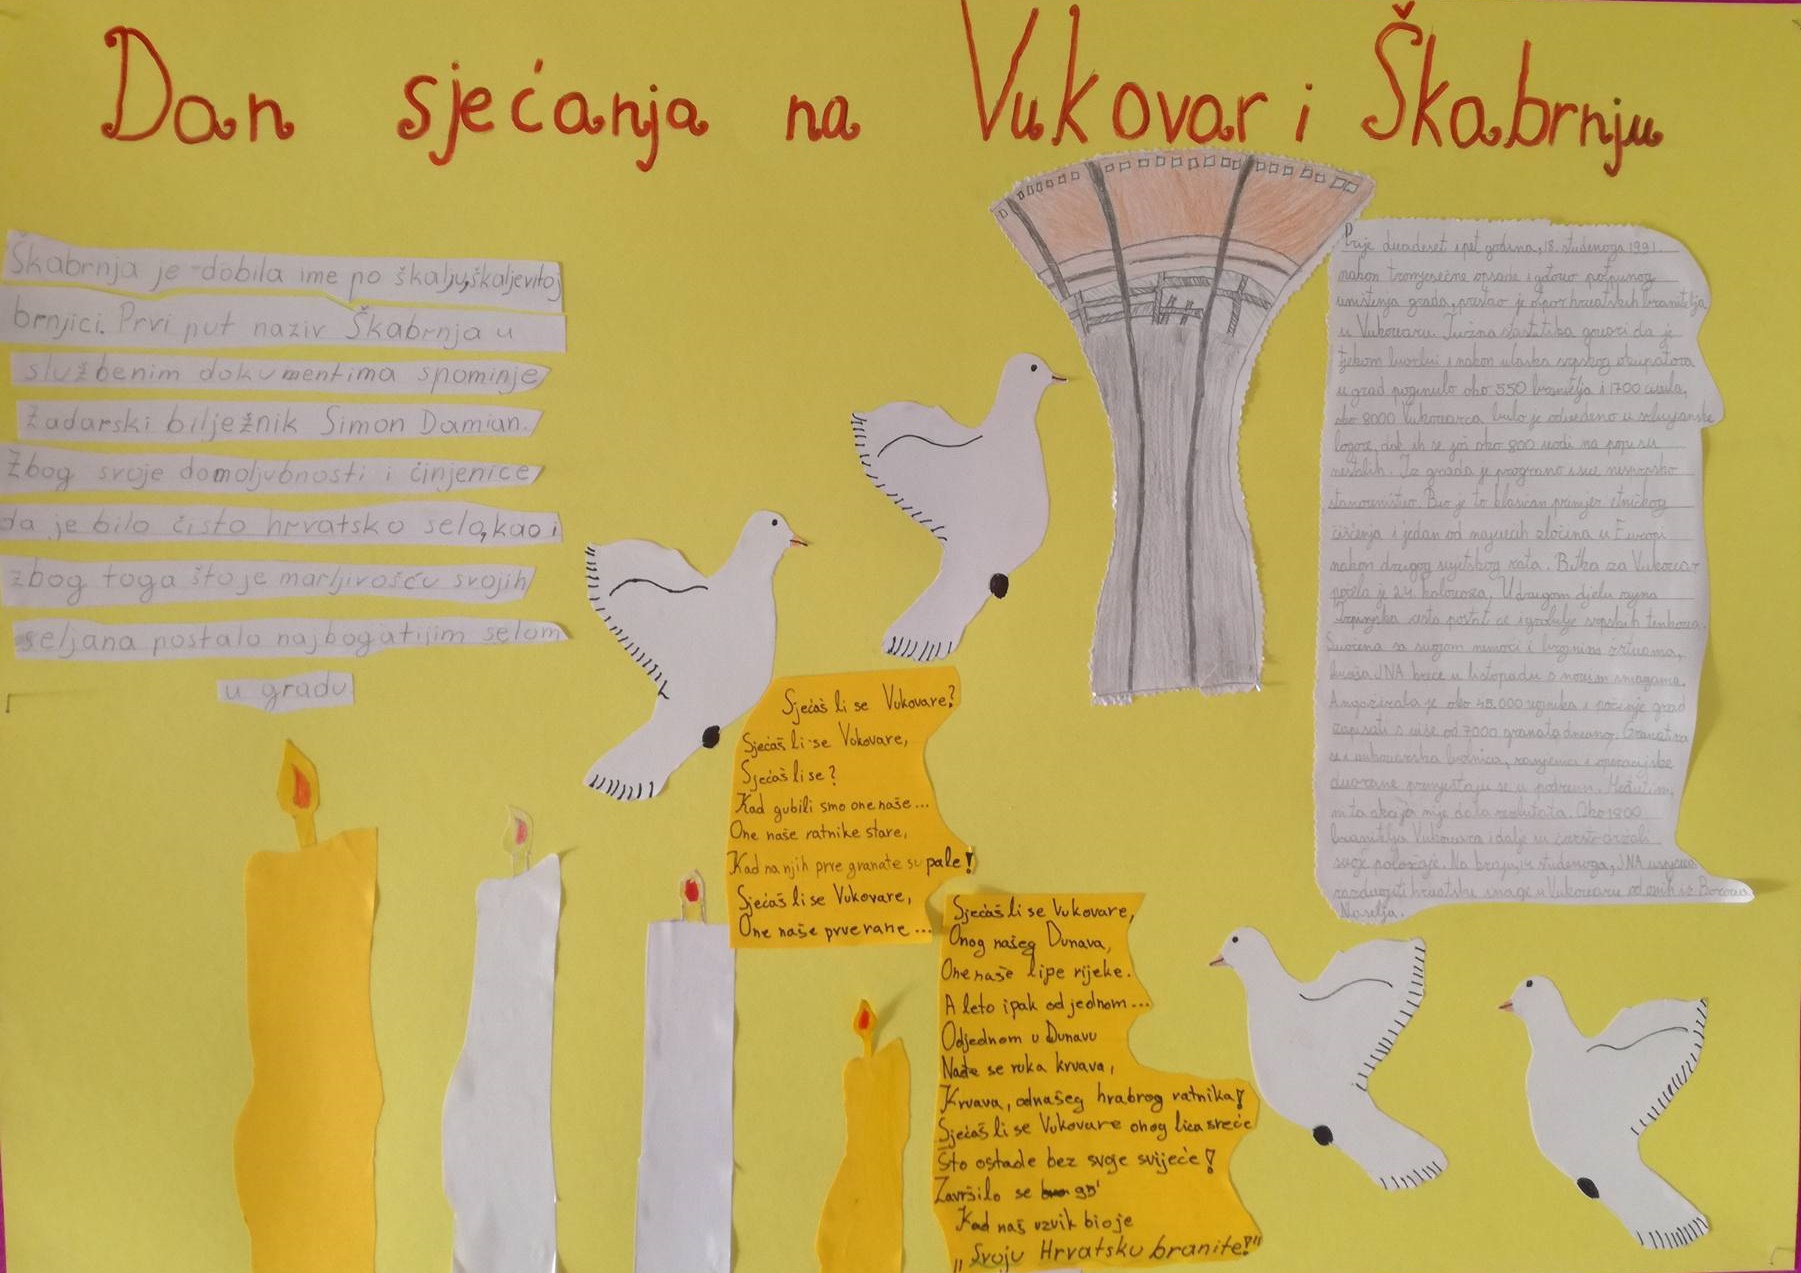 Dan sjećanja na Vukovar i Škabrnju
Škabrnja je dobila ime po škalju, škaljevitoj
brnjici. Prvi put naziv Škabrnja u
službenim dokumentima spominje
Zadarski bilježnik Simon Damian.
Zbog svoje domoljubnosti i činjenice
da je bilo čisto hrvatsko selo, kao i
zbog toga što je marljivošću svojih
seljana postalo najbogatijim selom
u gradu.
Sjećaš li se Vukovare?
Sjećaš li se Vukovare,
Sjećaš li se?
Kad gubili smo one naše...
One naše ratnike stare,
Kad na njih prve granate su pale!
Sjećaš li se Vukovare,
One naše prve rane...
Sjećaš li se Vukovare,
Onog našeg Dunava,
One naše lipe rijeke.
A leto ipak odjednom...
Odjednom u Dunavu
Nađe se ruka krvava,
Krvava, od našeg hrabrog ratnika!
Sjećaš li se Vukovare onog lica sreće
Što ostade bez svoje svijeće!
Završilo se 95'
Kad naš uzvik bio je
„Svoju Hrvatsku branite!"
Prije dvadeset i pet godina, 18. studenoga 1991.
nakon tromjesečne opsade i gotovo potpunog
uništenja grada, prestao je otpor hrvatskih branitelja
u Vukovaru. Tužna statistika govori da je
tijekom i nakon ulaska srpskog okupatora
u grad poginulo oko 550 branitelja i 1700 civila,
oko 8000 Vukovaraca bilo je odvedeno u srbijanske
logore, dok ih se još oko 800 vodi na popisu
nestalih. Iz grada je prognano sve nesrpsko
stanovništvo. Bio je to klasičan primjer etničkog
čišćenja i jedan od najvećih zločina u Europi
nakon drugog svjetskog rata. Bitka za Vukovar
počela je 24. kolovoza. U drugom djelu rujna
Trpinjska cesta postat će i groblje srpskih tenkova.
Suočena sa svojom nemoći i brojnim žrtvama,
JNA kreće u listopadu s novim snagama.
Angažirala je oko 45.000 vojnika i počinje grad
zapisati s više od 7000 granata dnevno. Granatira
se i vukovarska bolnica, ranjenici i operacijske
dvorane premještaju se u podrum. Međutim,
ni ta akcija nije dala rezultata. Oko 1800
branitelja Vukovara i dalje su čvrsto držali
svoje položaje. Na kraju, 14 studenoga, JNA uspjeva
razdvojiti hrvatske snage u Vukovaru od onih iz Borova
Naselja.